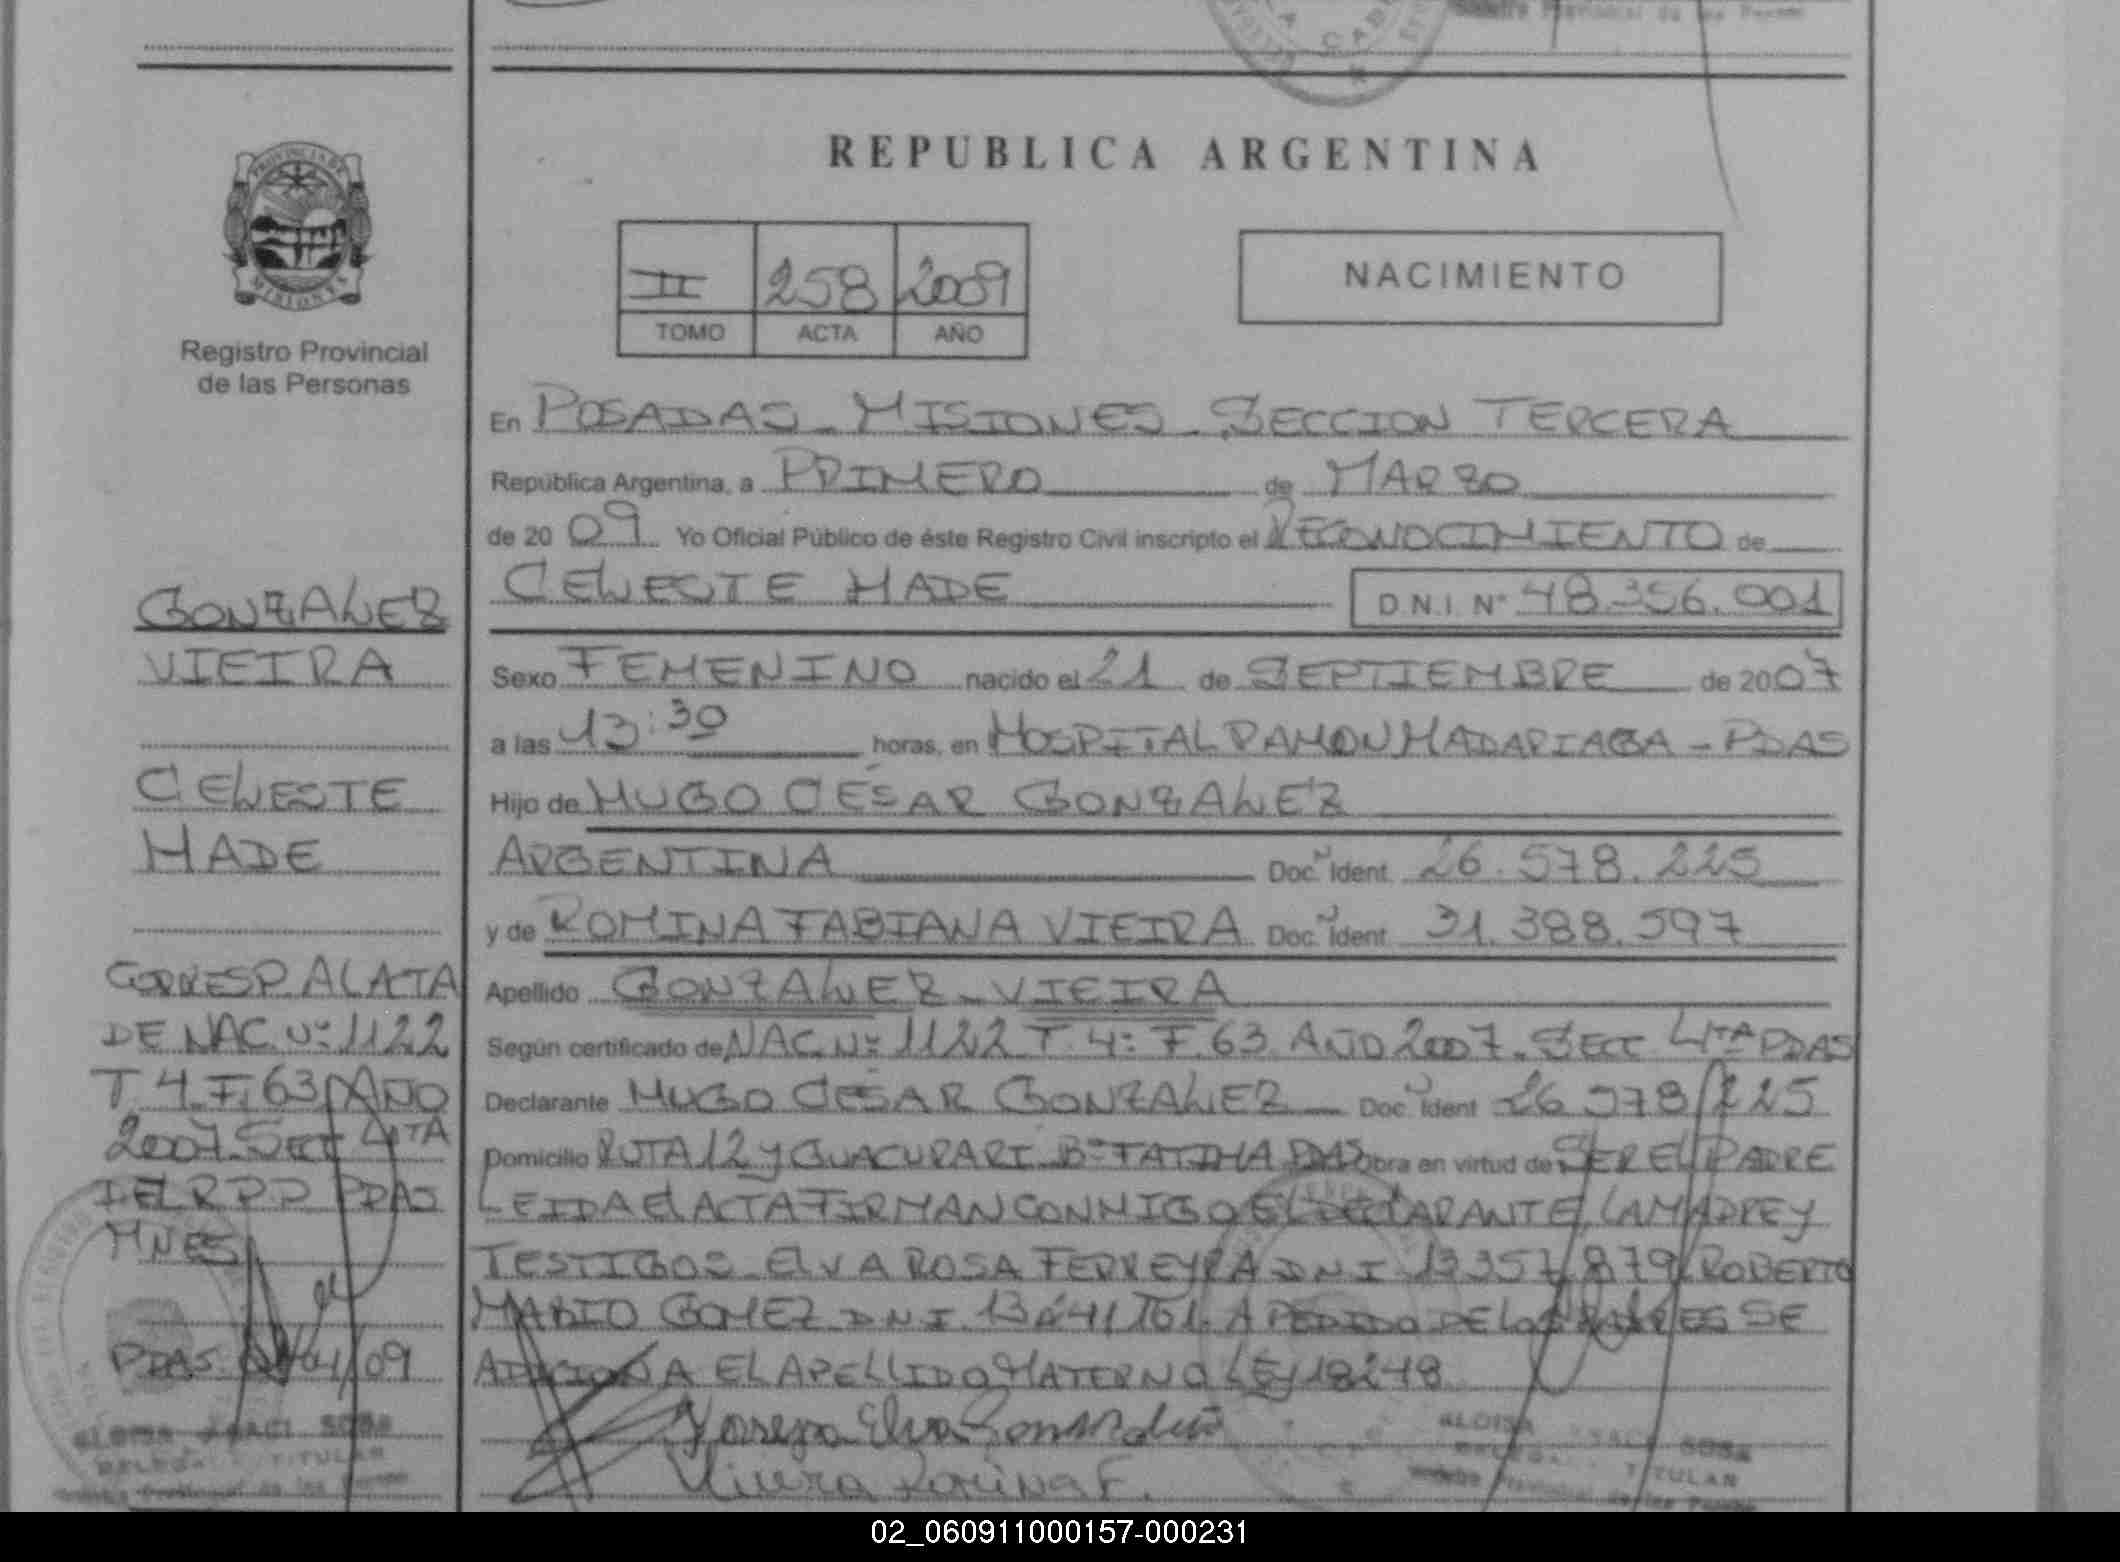 REPUBLICA ARGENTINA
PROVINCIA DE
MISIONES
Registro Provincial
de las Personas
II 258 2009
TOMO ACTA AÑO
NACIMIENTO
En POSADAS - MISIONES - SECCION TERCERA
República Argentina, a PRIMERO de MARZO
de 2009 Yo Oficial Público de éste Registro Civil inscripto el RECONOCIMIENTO de
CELESTE MADE D.N.I. N° 48.356.001
Sexo FEMENINO nacido el 21 de SEPTIEMBRE de 2007
a las 13:30 horas, en HOSPITAL RAMON MADARIAGA - PDAS
Hijo de HUGO CÉSAR GONZALEZ
ARGENTINA Doc. Ident. 26.578.225
y de ROMINA FABIANA VIEIRA Doc. Ident. 31.388.597
Apellido GONZALEZ - VIEIRA
Según certificado de NAC. N° 1122 T. 4° F. 63 AÑO 2007. SECC 4TA PDAS
Declarante HUGO CESAR GONZALEZ Doc. Ident 26 578 225
Domicilio RUTA 12 y GUACURARI B° FATIMA PDAS obra en virtud de SER EL PADRE
LEIDA El ACTA FIRMAN CONMIGO EL DECLARANTE, LA MADRE Y
TESTIGOS - ElVA ROSA FERREYRA DNI 13357879 ROBERTO
MARIO GOMEZ DNI. A PEDIDO DE LOS PADRES SE
ADICIONA EL APELLIDO MATERNO LEY 18248
Elva
Vieira Romina F.
GONZALEZ
VIEIRA
CELESTE
MADE
CORRESP. AL ACTA
DE NAC. N° 1122
T. 4 F. 63 AÑO
2007. SECC 4TA
DEL R.P.P. PDAS
MNES
PDAS /09
SOSA
TITULAR
ALOISA SOSA
TITULAR
02_060911000157-000231